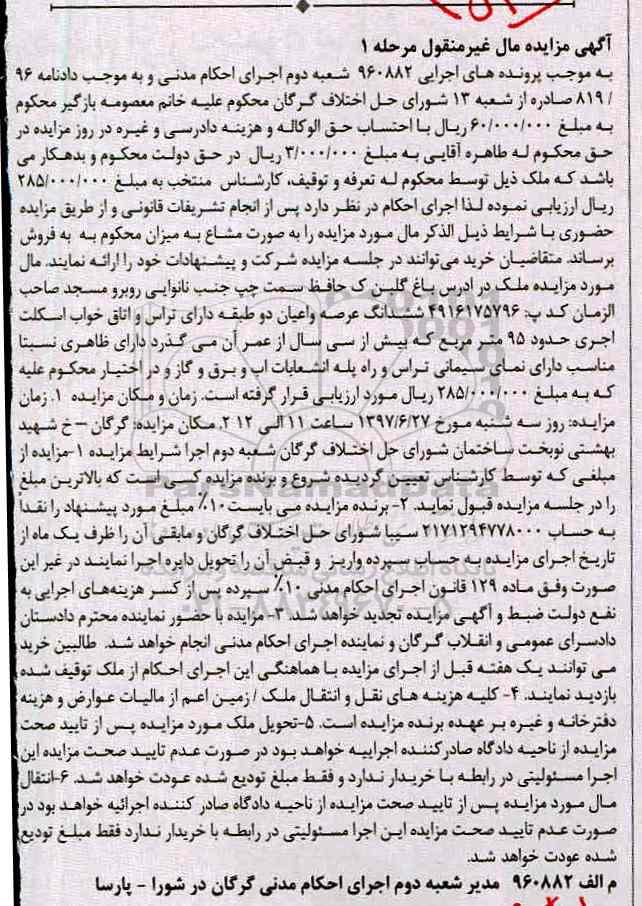 آگهی مزایده مال غیرمنقول مرحله ۱
به موجب پرونده های اجرایی ۹۶۰۸۸۲ شعبه دوم اجرای احکام مدنی و به موجب دادنامه ۹۶
/ ۸۱۹ صادره از شعبه ۱۳ شورای حل اختلاف گرگان محکوم علیه خانم معصومه بازگیر محکوم
به مبلغ ۶۰/۰۰۰/۰۰۰ ریال با احتساب حق الوکاله و هزینه دادرسی و غیره در روز مزایده در
حق محکوم له طاهره آقایی به مبلغ ۳/۰۰۰/۰۰۰ ریال در حق دولت محکوم و بدهکار می
باشد که ملک ذیل توسط محکوم له تعرفه و توقیف، کارشناس منتخب به مبلغ ۲۸۵/۰۰۰/۰۰۰
ریال ارزیابی نموده لذا اجرای احکام در نظر دارد پس از انجام تشریفات قانونی و از طریق مزایده
حضوری با شرایط ذیل الذکر مال مورد مزایده را به صورت مشاع به میزان محکوم به به فروش
برساند. متقاضیان خرید می‌توانند در جلسه مزایده شرکت و پیشنهادات خود را ارائه نمایند. مال
مورد مزایده ملک در ادرس باغ گلبن ک حافظ سمت چپ جنب نانوایی روبرو مسجد صاحب
الزمان کد پ: ۴۹۱۶۱۷۵۷۹۶ ششدانگ عرصه واعیان دو طبقه دارای تراس و اتاق خواب اسکلت
اجری حدود ۹۵ متر مربع که بیش از سی سال از عمر آن می گذرد دارای ظاهری نسبتا
مناسب دارای نمای سیمانی تراس و راه پله انشعابات اب و برق و گاز و در اختیار محکوم علیه
که به مبلغ ۲۸۵/۰۰۰/۰۰۰ ریال مورد ارزیابی قرار گرفته است. زمان و مکان مزایده ۱. زمان
مزایده: روز سه شنبه مورخ ۱۳۹۷/۶/۲۷ ساعت ۱۱ الی ۱۲ ۲. مکان مزایده: گرگان – خ شهید
بهشتی نوبخت ساختمان شورای حل اختلاف گرگان شعبه دوم اجرا شرایط مزایده ۱-مزایده از
مبلغی که توسط کارشناس تعیین گردیده شروع و برنده مزایده کسی است که بالاترین مبلغ
را در جلسه مزایده قبول نماید. ۲- برنده مزایده می بایست ۱۰٪ مبلغ مورد پیشنهاد را نقداً
به حساب ۲۱۷۱۲۹۴۷۷۸۰۰۰ سیبا شورای حل اختلاف گرگان و مابقی آن را ظرف یک ماه از
تاریخ اجرای مزایده به حساب سپرده واریز و قبض آن را تحویل دایره اجرا نمایند در غیر این
صورت وفق ماده ۱۲۹ قانون اجرای احکام مدنی ۱۰٪ سپرده پس از کسر هزینه‌های اجرایی به
نفع دولت ضبط و آگهی مزایده تجدید خواهد شد. ۳- مزایده با حضور نماینده محترم دادستان
دادسرای عمومی و انقلاب گرگان و نماینده اجرای احکام مدنی انجام خواهد شد. طالبین خرید
می توانند یک هفته قبل از اجرای مزایده با هماهنگی این اجرای احکام از ملک توقیف شده
بازدید نمایند. ۴- کلیه هزینه های نقل و انتقال ملک / زمین اعم از مالیات عوارض و هزینه
دفترخانه و غیره بر عهده برنده مزایده است. ۵-تحویل ملک مورد مزایده پس از تایید صحت
مزایده از ناحیه دادگاه صادرکننده اجراییه خواهد بود در صورت عدم تایید صحت مزایده این
اجرا مسئولیتی در رابطه با خریدار ندارد و فقط مبلغ تودیع شده عودت خواهد شد. ۶-انتقال
مال مورد مزایده پس از تایید صحت مزایده از ناحیه دادگاه صادر کننده اجرائیه خواهد بود در
صورت عدم تایید صحت مزایده این اجرا مسئولیتی در رابطه با خریدار ندارد فقط مبلغ تودیع
شده عودت خواهد شد.
م الف ۹۶۰۸۸۲ مدیر شعبه دوم اجرای احکام مدنی گرگان در شورا - پارسا